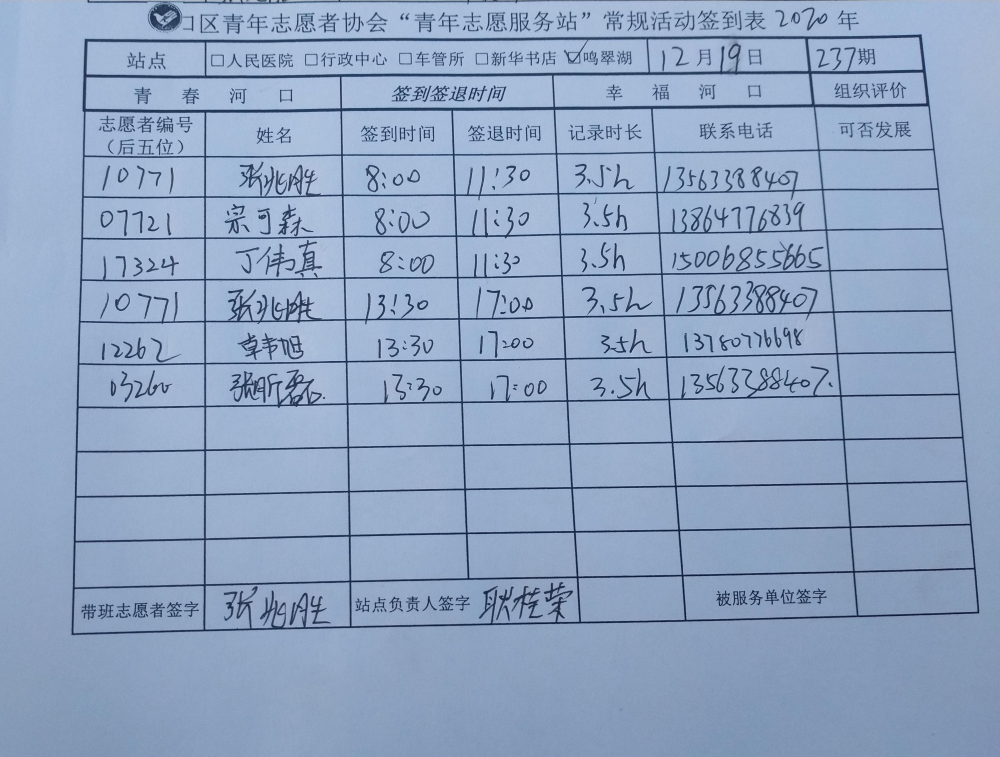 口区青年志愿者协会“青年志愿服务站”常规活动签到表 2020 年
站点 □人民医院 □行政中心 □车管所 □新华书店 ☑鸣翠湖 12月19日 237期
青春河口 签到签退时间 幸福河口 组织评价
志愿者编号（后五位） 姓名 签到时间 签退时间 记录时长 联系电话 可否发展
10771 张兆胜 8:00 11:30 3.5h 13563388407
07721 宗可森 8:00 11:30 3.5h 13864776839
17324 丁伟真 8:00 11:30 3.5h 15006855665
10771 张兆胜 13:30 17:00 3.5h 13563388407
12262 13:30 17:00 3.5h 13780776698
03260 张昕磊 13:30 17:00 3.5h 13563388407.
带班志愿者签字 张兆胜 站点负责人签字 耿桂荣 被服务单位签字